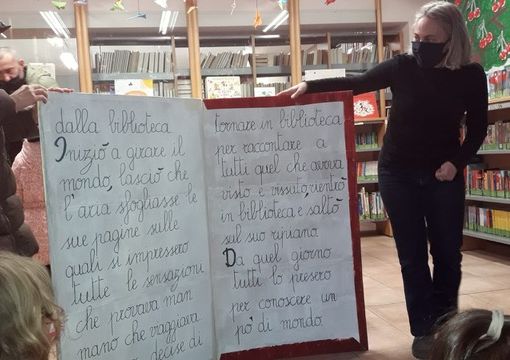 dalla biblioteca
Iniziò a girare il
mondo, lasciò che
l'aria sfogliasse le
sue pagine sulle
quali si impressero
tutte le sensazioni
che provava man
mano che viaggiava
decise di
tornare in biblioteca
per raccontare a
tutti quel che aveva
visto e vissuto, rientrò
in biblioteca e saltò
sul suo ripiano.
Da quel giorno
tutti lo presero
per conoscere un
pò di mondo.